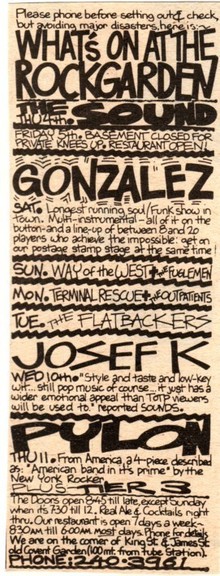 Please phone before setting out & check
but avoiding major disasters, here is
WHAT'S ON AT THE
ROCKGARDEN
THE SOUND
THU 4th.
FRIDAY 5th. BASEMENT CLOSED FOR
PRIVATE KNEES UP. RESTAURANT OPEN!
GONZALEZ
SAT. Longest running soul/Funk show in
town. Multi-instrumental - all of it on the
button - and a line-up of between 8 and 20
players who achieve the impossible: get on
our postage stamp stage at the same time!
SUN. WAY of the WEST + the FUELEMEN
MON. TERMINAL RESCUE + the OUTPATIENTS
TUE. THE FLATBACKERS
JOSEF K
WED 10th. "Style and taste and low-key
wit... still pop music of course... it just has a
wider emotional appeal than TOTP viewers
will be used to." reported SOUNDS.
PYLON
THU 11. From America, a 4-piece described
as: "American band in its prime" by the
New York Rocker.
PLUS
The Doors open 8.45 till late, except Sunday
when its 7.30 till 12. Real Ale & Cocktails right
thru. Our restaurant is open 7 days a week -
8.30am till 6.00am most days. Phone for details
We are on the corner of King St. & James St.
old Covent Garden (100 mt. from Tube Station).
PHONE: 240-3961